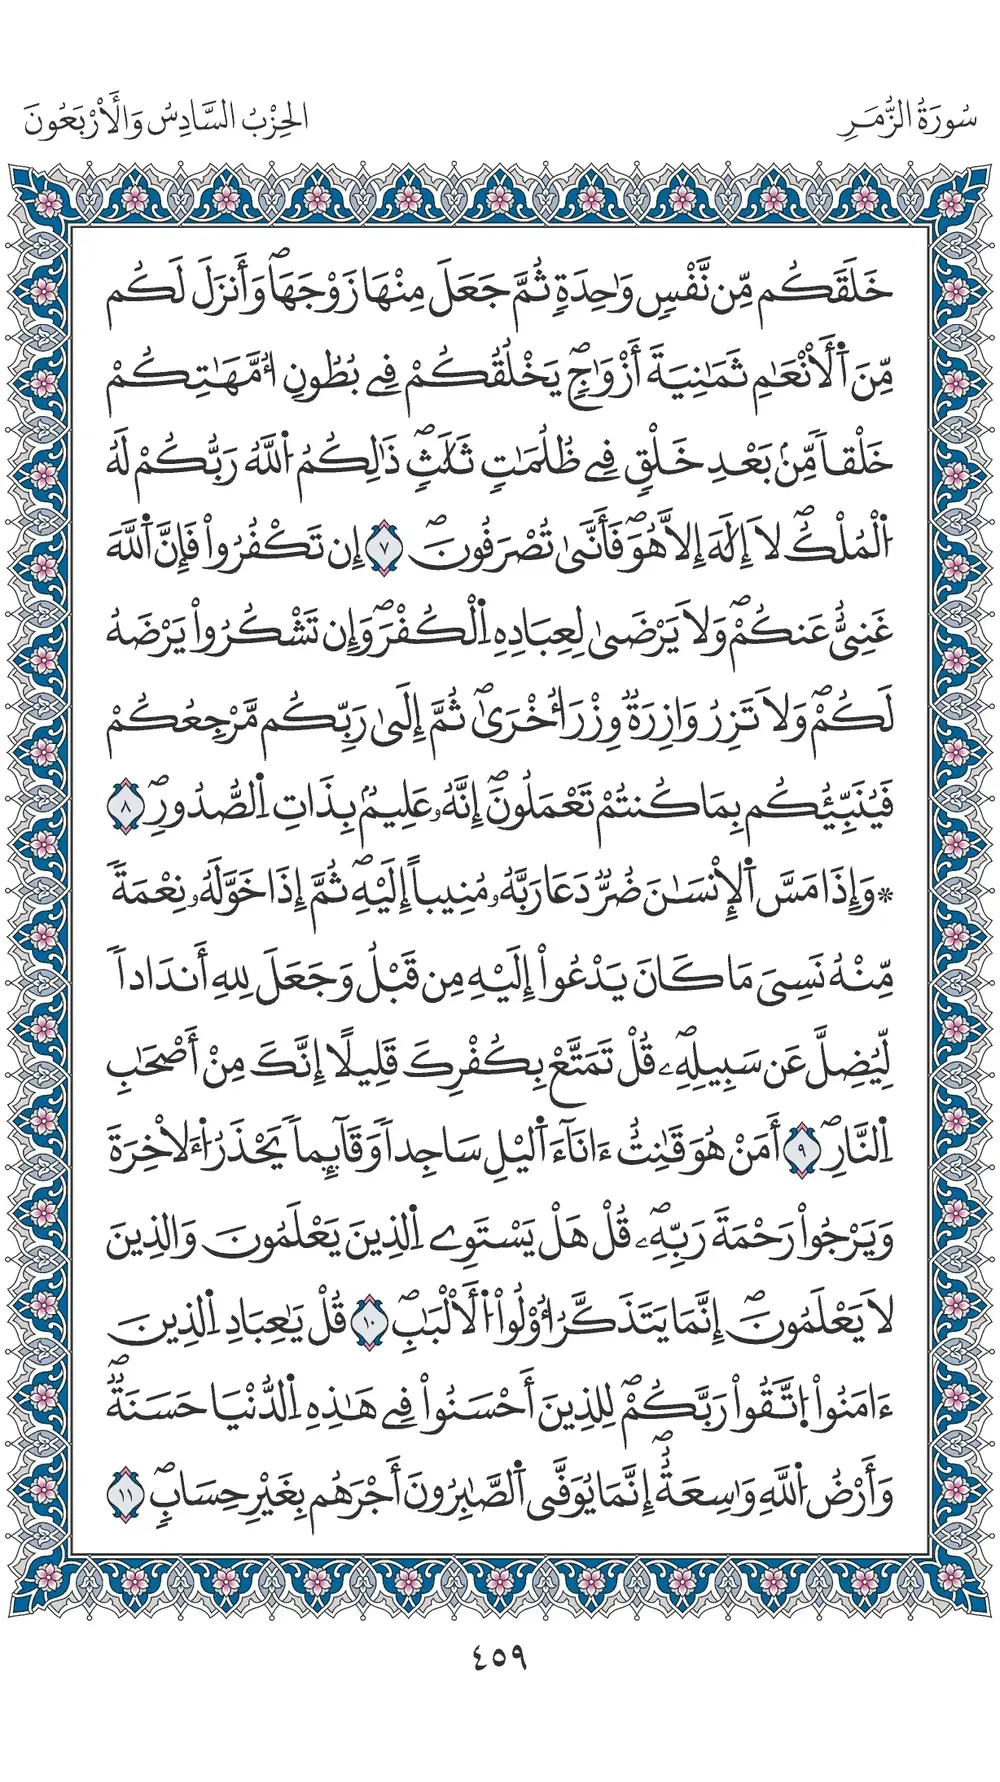 سُورَةُ الزُّمَرِ
الحِزْبُ السَّادِسُ وَالْأَرْبَعُونَ
خَلَقَكُم مِّن نَّفْسٖ وَٰحِدَةٖ ثُمَّ جَعَلَ مِنْهَا زَوْجَهَاۖ وَأَنزَلَ لَكُم
مِّنَ اَ۬لْأَنْعَٰمِ ثَمَٰنِيَةَ أَزْوَٰجٖۖ يَخْلُقُكُمْ فِے بُطُونِ أُمَّهَٰتِكُمْ
خَلْقاٗ مِّنۢ بَعْدِ خَلْقٖ فِے ظُلُمَٰتٖ ثَلَٰثٖۖ ذَٰلِكُمُ اُ۬للَّهُ رَبُّكُمْ لَهُ
اُ۬لْمُلْكُۖ لَا إِلَٰهَ إِلَّا هُوَۖ فَأَنَّىٰ تُصْرَفُونَۖ ٧ إِن تَكْفُرُواْ فَإِنَّ اَ۬للَّهَ
غَنِيٌّ عَنكُمْۖ وَلَا يَرْضَىٰ لِعِبَادِهِ اِ۬لْكُفْرَۖ وَإِن تَشْكُرُواْ يَرْضَهُ
لَكُمْۖ وَلَا تَزِرُ وَازِرَةٞ وِزْرَ أُخْرَىٰۖ ثُمَّ إِلَىٰ رَبِّكُم مَّرْجِعُكُمْ
فَيُنَبِّئُكُم بِمَا كُنتُمْ تَعْمَلُونَۖ إِنَّهُۥ عَلِيمُۢ بِذَاتِ اِ۬لصُّدُورِۖ ٨
۞وَإِذَا مَسَّ اَ۬لْإِنسَٰنَ ضُرّٞ دَعَا رَبَّهُۥ مُنِيباً إِلَيْهِۖ ثُمَّ إِذَا خَوَّلَهُۥ نِعْمَةٗ
مِّنْهُ نَسِيَ مَا كَانَ يَدْعُواْ إِلَيْهِ مِن قَبْلُ وَجَعَلَ لِلهِ أَندَاداٗ
لِّيُضِلَّ عَن سَبِيلِهِۦۖ قُلْ تَمَتَّعْ بِكُفْرِكَ قَلِيلًا إِنَّكَ مِنْ أَصْحَٰبِ
اِ۬لنَّارِۖ ٩ أَمَنْ هُوَ قَٰنِتٌ ءَانَآءَ اَ۬ليْلِ سَاجِداٗ وَقَآئِماٗ يَحْذَرُ اُ۬لْأٓخِرَةَ
وَيَرْجُواْ رَحْمَةَ رَبِّهِۦۖ قُلْ هَلْ يَسْتَوِے اِ۬لذِينَ يَعْلَمُونَ وَالذِينَ
لَا يَعْلَمُونَۖ إِنَّمَا يَتَذَكَّرُ أُوْلُواْ اُ۬لْأَلْبَٰبِۖ ١٠ قُلْ يَٰعِبَادِ اِ۬لذِينَ
ءَامَنُواْ اُ۪تَّقُواْ رَبَّكُمْۖ لِلذِينَ أَحْسَنُواْ فِے هَٰذِهِ اِ۬لدُّنْيَا حَسَنَةٞۖ
وَأَرْضُ اُ۬للَّهِ وَٰسِعَةٌۖ إِنَّمَا يُوَفَّى اَ۬لصَّٰبِرُونَ أَجْرَهُم بِغَيْرِ حِسَابٖۖ ١١
٤٥٩